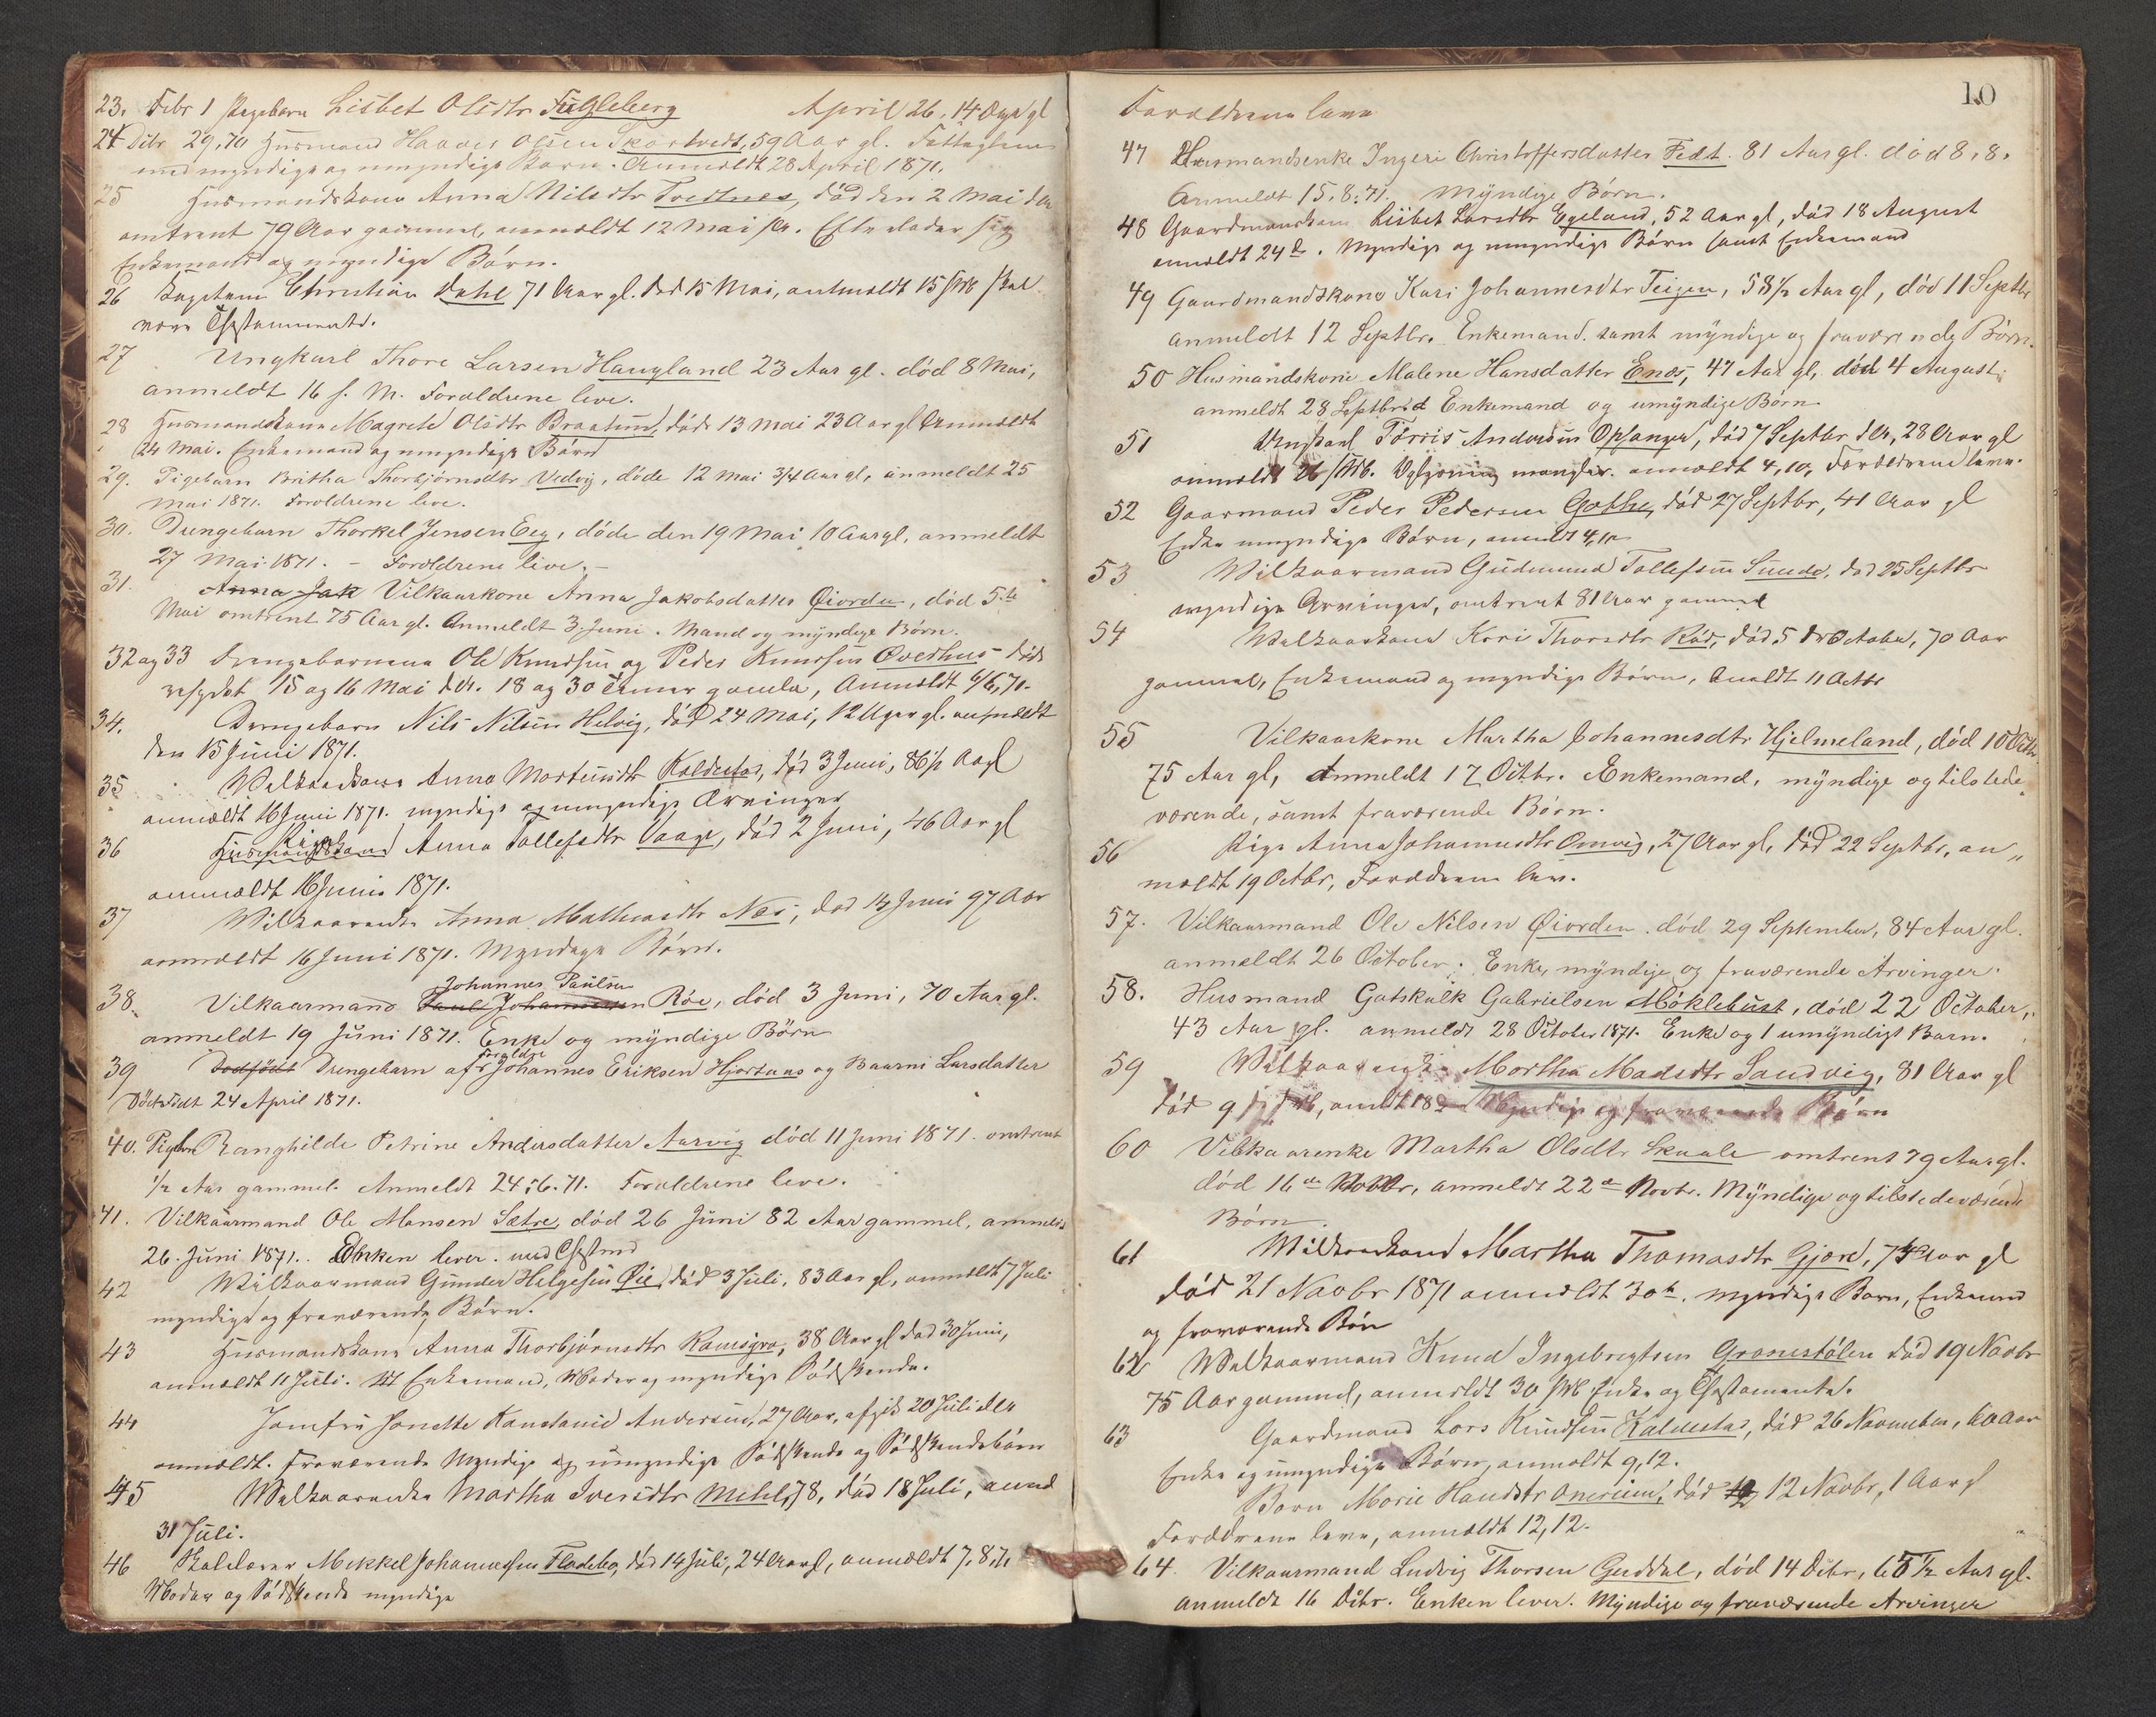 23. Febr 1 Pigebarn Lisbet Olsdtr Fugleberg April 26, 14 Dage gl
24 Dcbr 29, 70 Husmand Haaver Olsen Skartvedt, 59 Aar gl.
med myndige og umyndige Børn. Anmeldt 28 April 1871.
25 Husmandskone Anna Nilsdtr Tvedtnes, død den 2 Mai
omtrent 79 Aar gammel, anmeldt 12 Mai. Efterlader sig
Enkemand og myndige Børn.
26 Kapitain Christian Dahl 71 Aar gl. død 15 Mai, anmeldt 15 skal
være Testamente.
27 Ungkarl Thore Larsen Haugland 23 Aar gl. død 8 Mai,
anmeldt 16 s. M. Forældrene leve.
28 Husmandskone Magrete Olsdtr Braatun, døde 13 Mai 23 Aar gl Anmeldt
24 Mai. Enkemand og umyndige Børn
29. Pigebarn Britha Thorbjørnsdtr Vedvig, døde 12 Mai 3/4 Aar gl, anmeldt 25
Mai 1871. Forældrene leve.
30. Drengebarn Thorkel Jensen Eeg, døde den 19 Mai 10 Aar gl, anmeldt
27 Mai 1871. - Forældrene live. -
31. Anna Jak Vilkaarkone Anna Jakobsdatter Øiorden, død 5te
Mai omtrent 75 Aar gl. Anmeldt 3. Juni. Mand og myndige Børn.
32 og 33 Drengebørnene Ole Knudsen og Peder Knudsen Øverhus døde
resp. 15 og 16 Mai d. A. 18 og 30 Timer gamle, Anmeldt 6/6, 71.
34. Drengebarn Nils Nilsen Helvig, død 24 Mai, 12 Uger gl. anmeldt
den 15 Juni 1871.
35 Vilkaarkone Anna Mortensdtr Koldestad, død 3 Juni, 86 1/2 Aar gl
anmeldt 16 Juni 1871. myndige og umyndige Arvinger
36 Husmandskone Pige Anna Tollefsdtr Vaage, død 2 Juni, 46 Aar gl
anmeldt 16 Juni 1871.
37 Vilkaarenke Anna Mathiasdtr Næs, død 14 Juni 97 Aar
anmeldt 16 Juni 1871. Myndige Børn.
Johannes Paulsen
38. Vilkaarmand Paul Johannesen Røe, død 3 Juni, 70 Aar gl.
anmeldt 19 Juni 1871. Enke og myndige Børn
39 Dødfødt Drengebarn af Forældre Johannes Eriksen Hjortaas og Baarni Larsdatter
Dødfødt 24 April 1871.
40. Pigebarn Ranghilde Petrine Andersdatter Aarvig død 11 Juni 1871. omtrent
1/2 Aar gammel. Anmeldt 24. 6. 71. Forældrene leve.
41. Vilkaarmand Ole Monsen Sætre, død 26 Juni 82 Aar gammel, anmeldt
26. Juni 1871. Enken lever.
42 Vilkaarmand Gunder Helgesen Øie, død 3 Juli, 83 Aar gl, anmeldt 7 Juli
myndige og fraværende Børn.
43 Husmandskone Anna Thorbjørnsdtr Ramsgrø, 38 Aar gl død 30 Juni,
anmeldt 11 Juli. Enkemand, Moder og myndige Sødskende.
44 Jomfru Janette Konstanse Andersen, 27 Aar, afgik 20 Juli
anmeldt. Fraværende Myndige og umyndige Sødskende og Sødskendebørn
45 Vilkaarenke Martha Iversdtr Mehl, 78, død 18 Juli, anmd
31 Juli.
46 Mekkel Johannesen Fladebø, død 14 Juli, 24 Aar gl, anmeldt 7, 8, 71
Moder og Sødskende myndige
10
Forældrene leve
47 Husmandsenke Ingeri Christoffersdatter Fedt. 81 Aar gl. død 8. 8.
Anmeldt 15. 8. 71. Myndige Børn.
48 Gaardmandskone Lisbet Larsdtr Egeland, 52 Aar gl, død 18 August
anmeldt 24de. Myndige og umyndige Børn samt Enkemand
49 Gaardmandskone Kari Johannesdtr Teigen, 58 1/2 Aar gl, død 11 Septbr
anmeldt 12 Septbr. Enkemand. samt myndige og fraværende Børn.
50 Husmandskone Malene Hansdatter Enæs, 47 Aar gl, død 4 August.
anmeldt 28 Septbr Enkemand og umyndige Børn
51 Ungkarl Torris Andersen Opsanger, død 7 Septbr d.A., 28 Aar gl
anmeldt 26. Opgjøring mangler. anmeldt 4, 10, Forældrene leve.
52 Gaarmand Peder Pedersen Gothe, død 27 Septbr, 41 Aar gl
Enke umyndige Børn, anmeldt 4, 10
53 Vilkaarmand Gudmund Tollefsen Sunde, død 25 Septbr
myndige Arvinger, omtrent 81 Aar gammel
54 Vilkaarkone Kari Thorsdtr Röd, død 5 October, 70 Aar
gammel, Enkemand og myndige Børn, Anmeldt 11 Octbr
55 Vilkaarkone Martha Johannesdtr Hjelmeland, død 10 Octbr
75 Aar gl, Anmeldt 17 Octbr. Enkemand, myndige og tilstede-
værende, samt fraværende Børn.
56 Pige Anna Johannesdtr Omvig, 27 Aar gl, død 22 Septbr, an„
meldt 19 Octbr, Forældrene leve.
57. Vilkaarmand Ole Nilsen Øiorden. død 29 September, 84 Aar gl.
anmeldt 26 October. Enke, myndige og fraværende Arvinger.
58. Husmand Gotskalk Gabrielsen Møklebust, død 22 October,
43 Aar gl. anmeldt 28 October 1871. Enke og 1 umyndigt Barn.
59 Vilkaarenke Martha Madsdtr Sandvig, 81 Aar gl
død 9, anmdt 18de Myndige og fraværende Børn
60 Vilkaarenke Martha Olsdtr Skaale omtrent 79 Aar gl.
død 16de Novbr, anmeldt 22de Novbr. Myndige og tilstedeværende
Børn.
61 Vilkaarkone Martha Thomasdtr Gjøre, Aar gl
død 21 Novbr 1871 anmeldt 30te. myndige Børn, Enkemand
og fraværende Børn
62 Vilkaarmand Knud Ingebrigtsen Gronestølen død 19 Novbr
75 Aar gammel, anmeldt 30 Enke og Testamente.
63 Gaardmand Lars Knudsen Kaldestad, død 26 November, 60 Aar
Enke og umyndige Børn, anmeldt 9, 12.
Barn Marie Omvigen, død 12 Novbr, 1 Aar gl
Forældrene leve, anmeldt 12, 12.
64. Vilkaarmand Ludvig Thorsen Guddal, død 14 Dcbr, 65 1/2 Aar gl.
anmeldt 16 Dcbr. Enken lever. Myndige og fraværende Arvinger